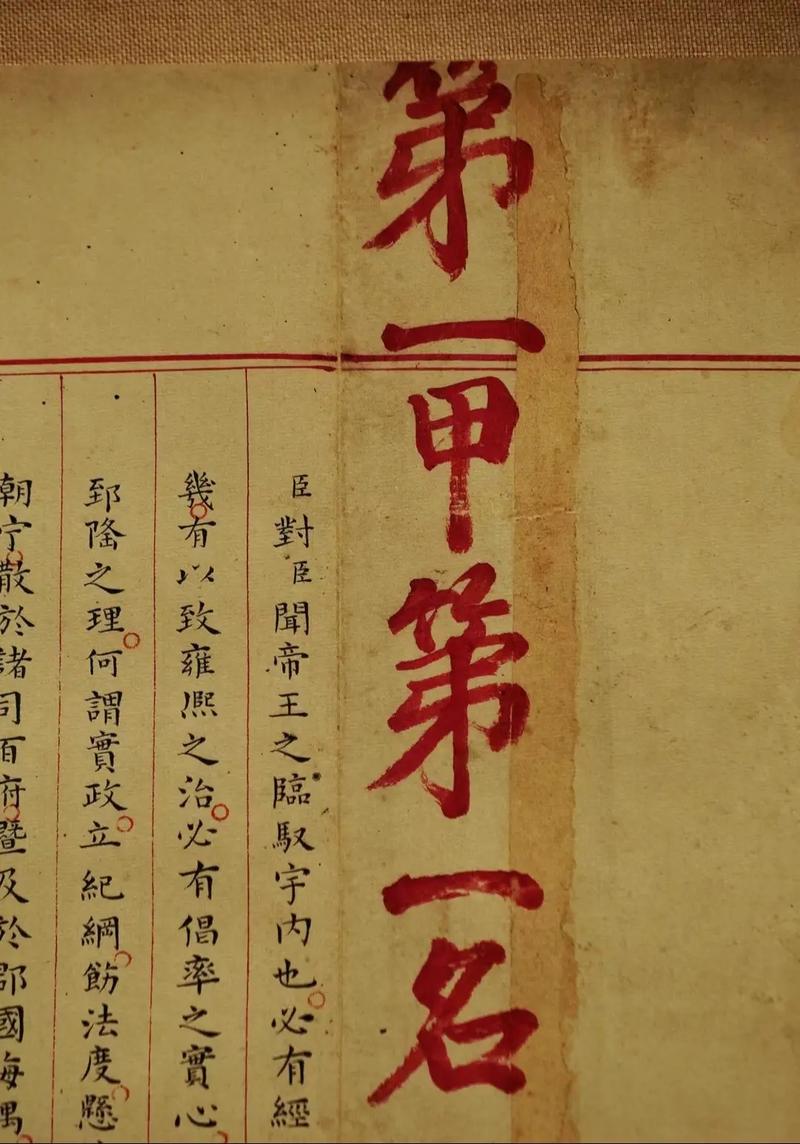 第一甲第一名
臣對臣聞帝王之臨馭宇内也必有經
幾有以致雍熈之治必有倡率之實心
郅隆之理何謂實政立紀綱飭法度懸
朝宁散於諸司百府暨及於郡國海隅